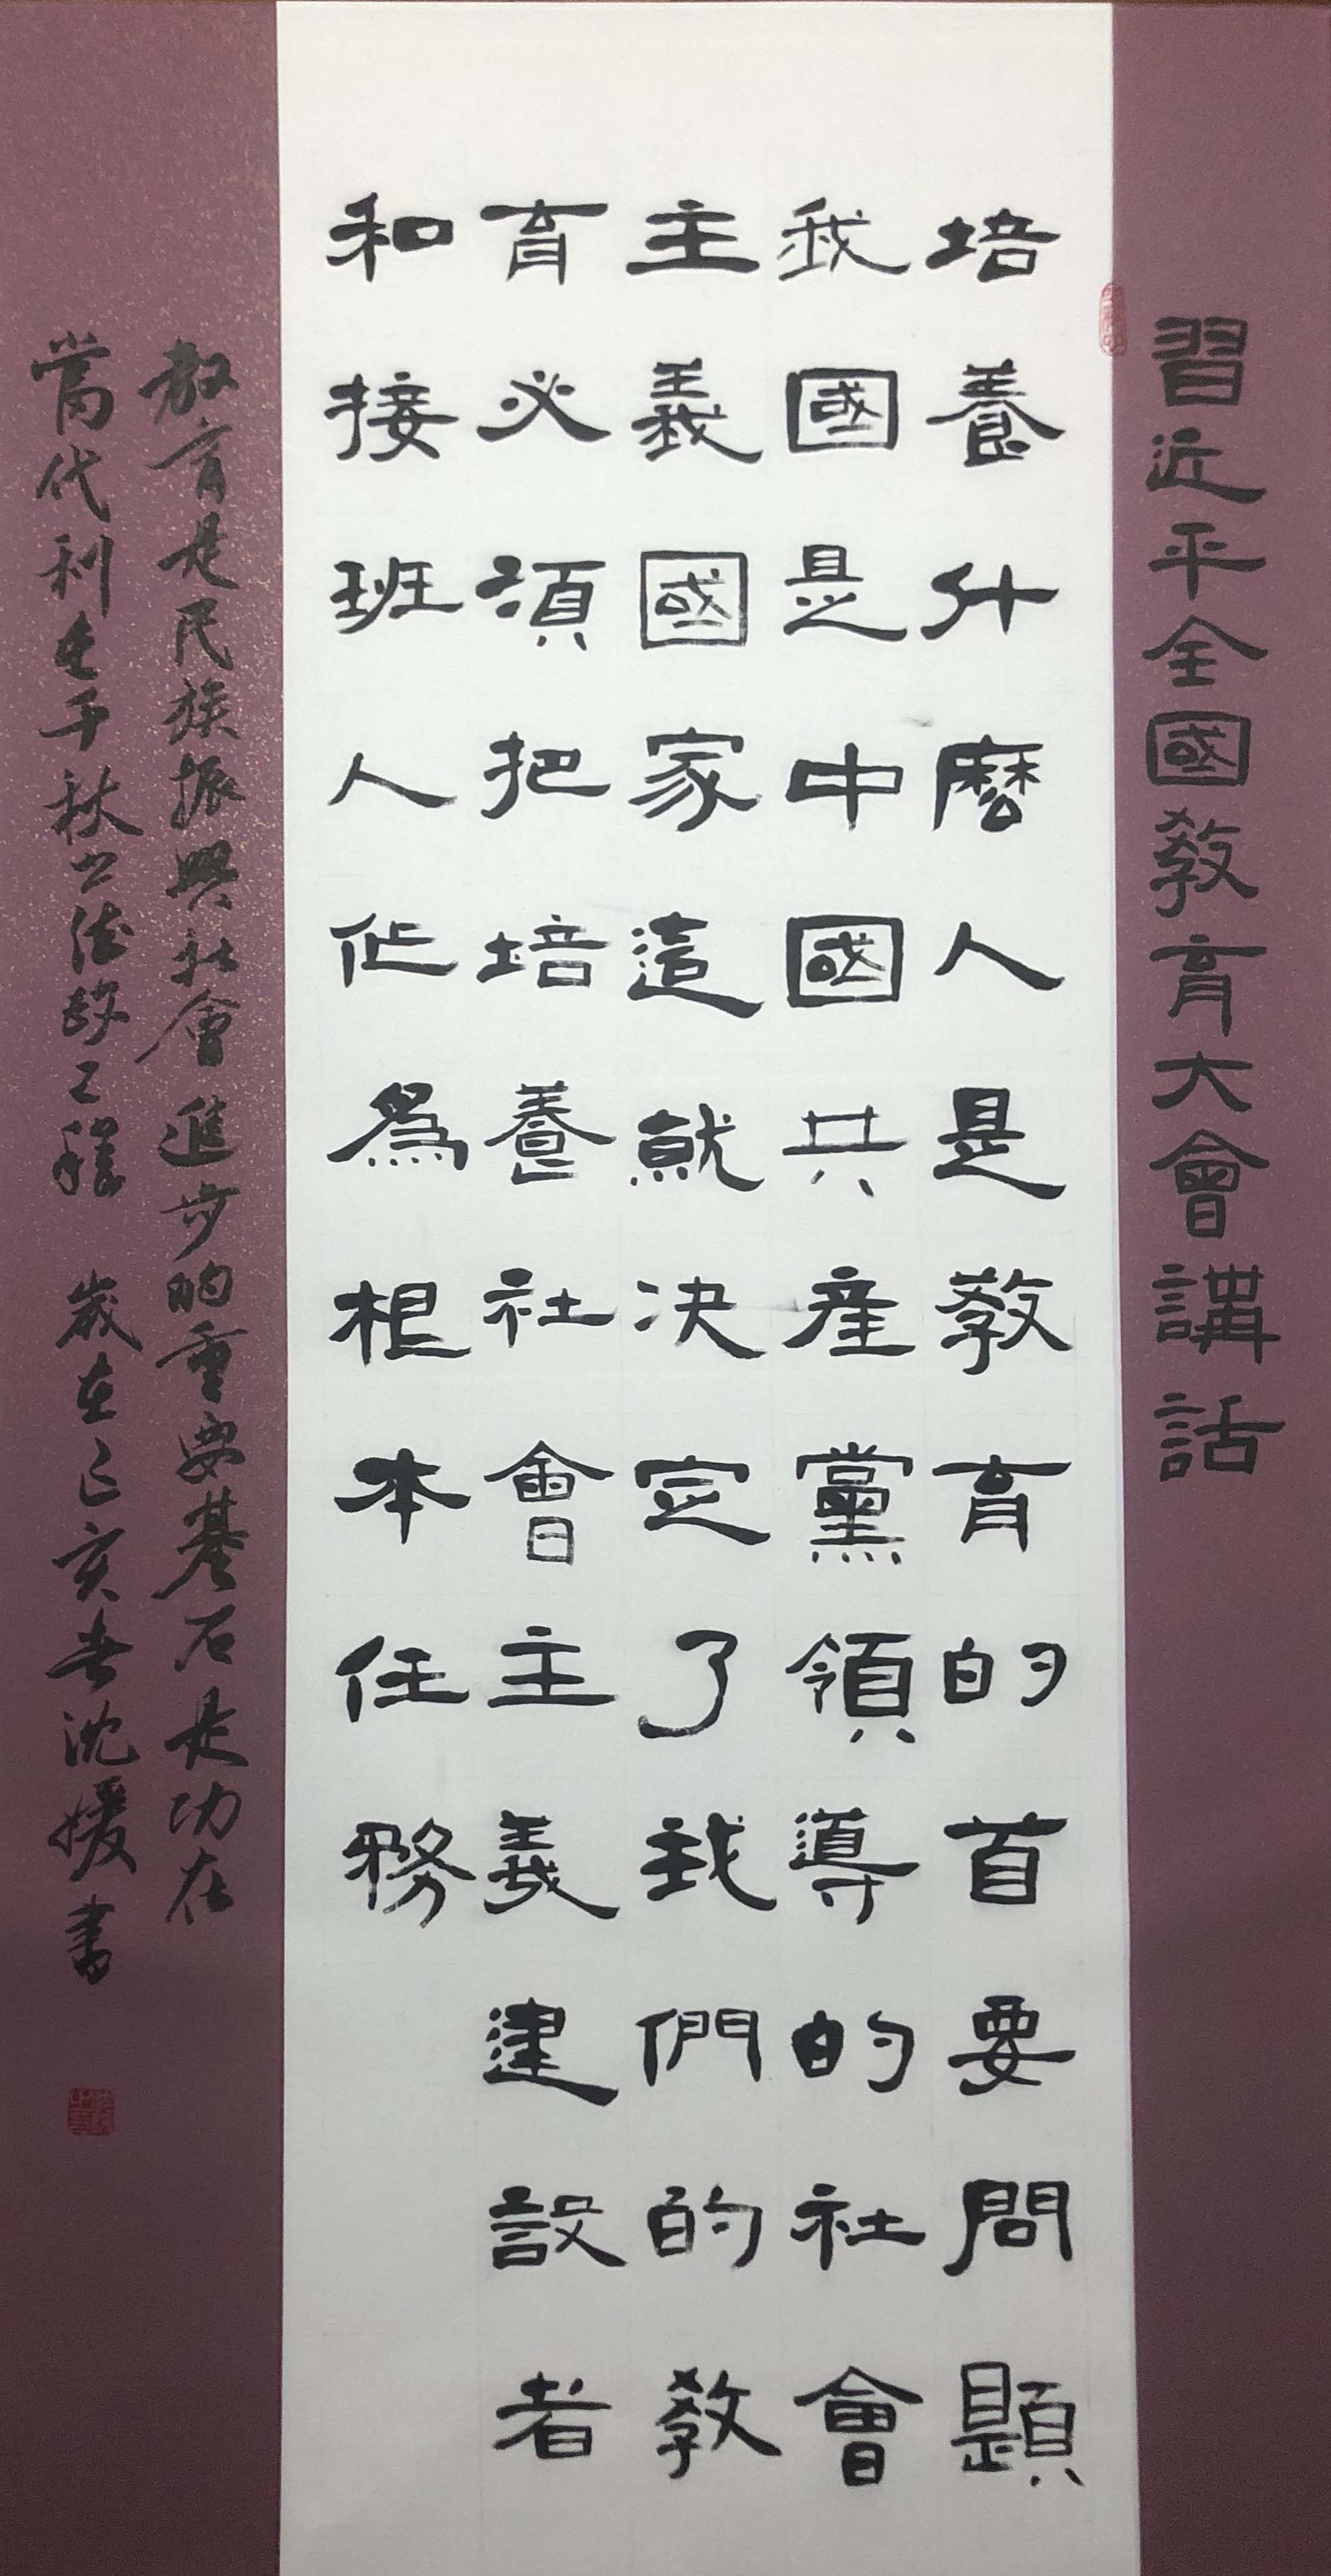 習近平全國教育大會講話
培養什麼人是教育的首要問題
我國是中國共産黨領導的社會
主義國家這就决定了我們的教
育必須把培養社會主義建設者
和接班人作爲根本任務
教育是民族振興社會進步的重要基石是功在
當代利在千秋的德政工程 歲在己亥春沈媛書